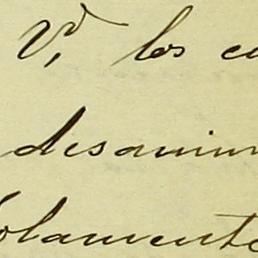 Vd, los cu
desanim
solamente